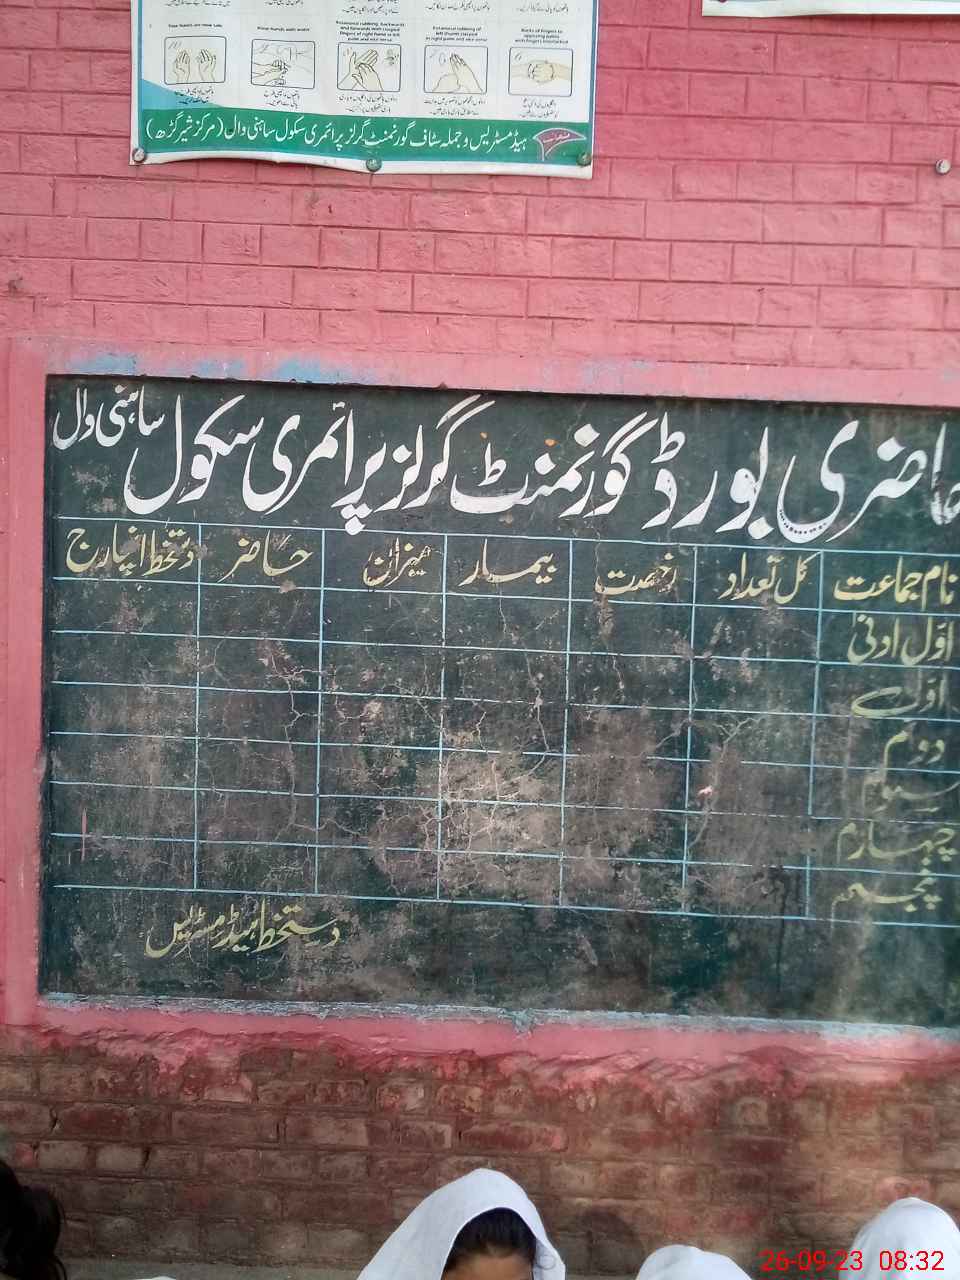 Your hands are now safe
Rinse hands with water
Rotational rubbing, backwards and forwards with clasped fingers of right hand in left palm and vice versa
Rotational rubbing of left thumb clasped in right palm and vice versa
Backs of fingers to opposing palms with fingers interlocked
ہیڈ مسٹریس و جملہ سٹاف گورنمنٹ گرلز پرائمری سکول ساہنی وال (مرکز شیر گڑھ)
حاضری بورڈ گورنمنٹ گرلز پرائمری سکول ساہنی وال
نام جماعت کل تعداد رخصت بیمار میزان حاضر دستخط انچارج
اوّل ادنیٰ
اوّل
دوئم
سوئم
چہارم
پنجم
دستخط ہیڈ مسٹریس
26-09-23 08:32